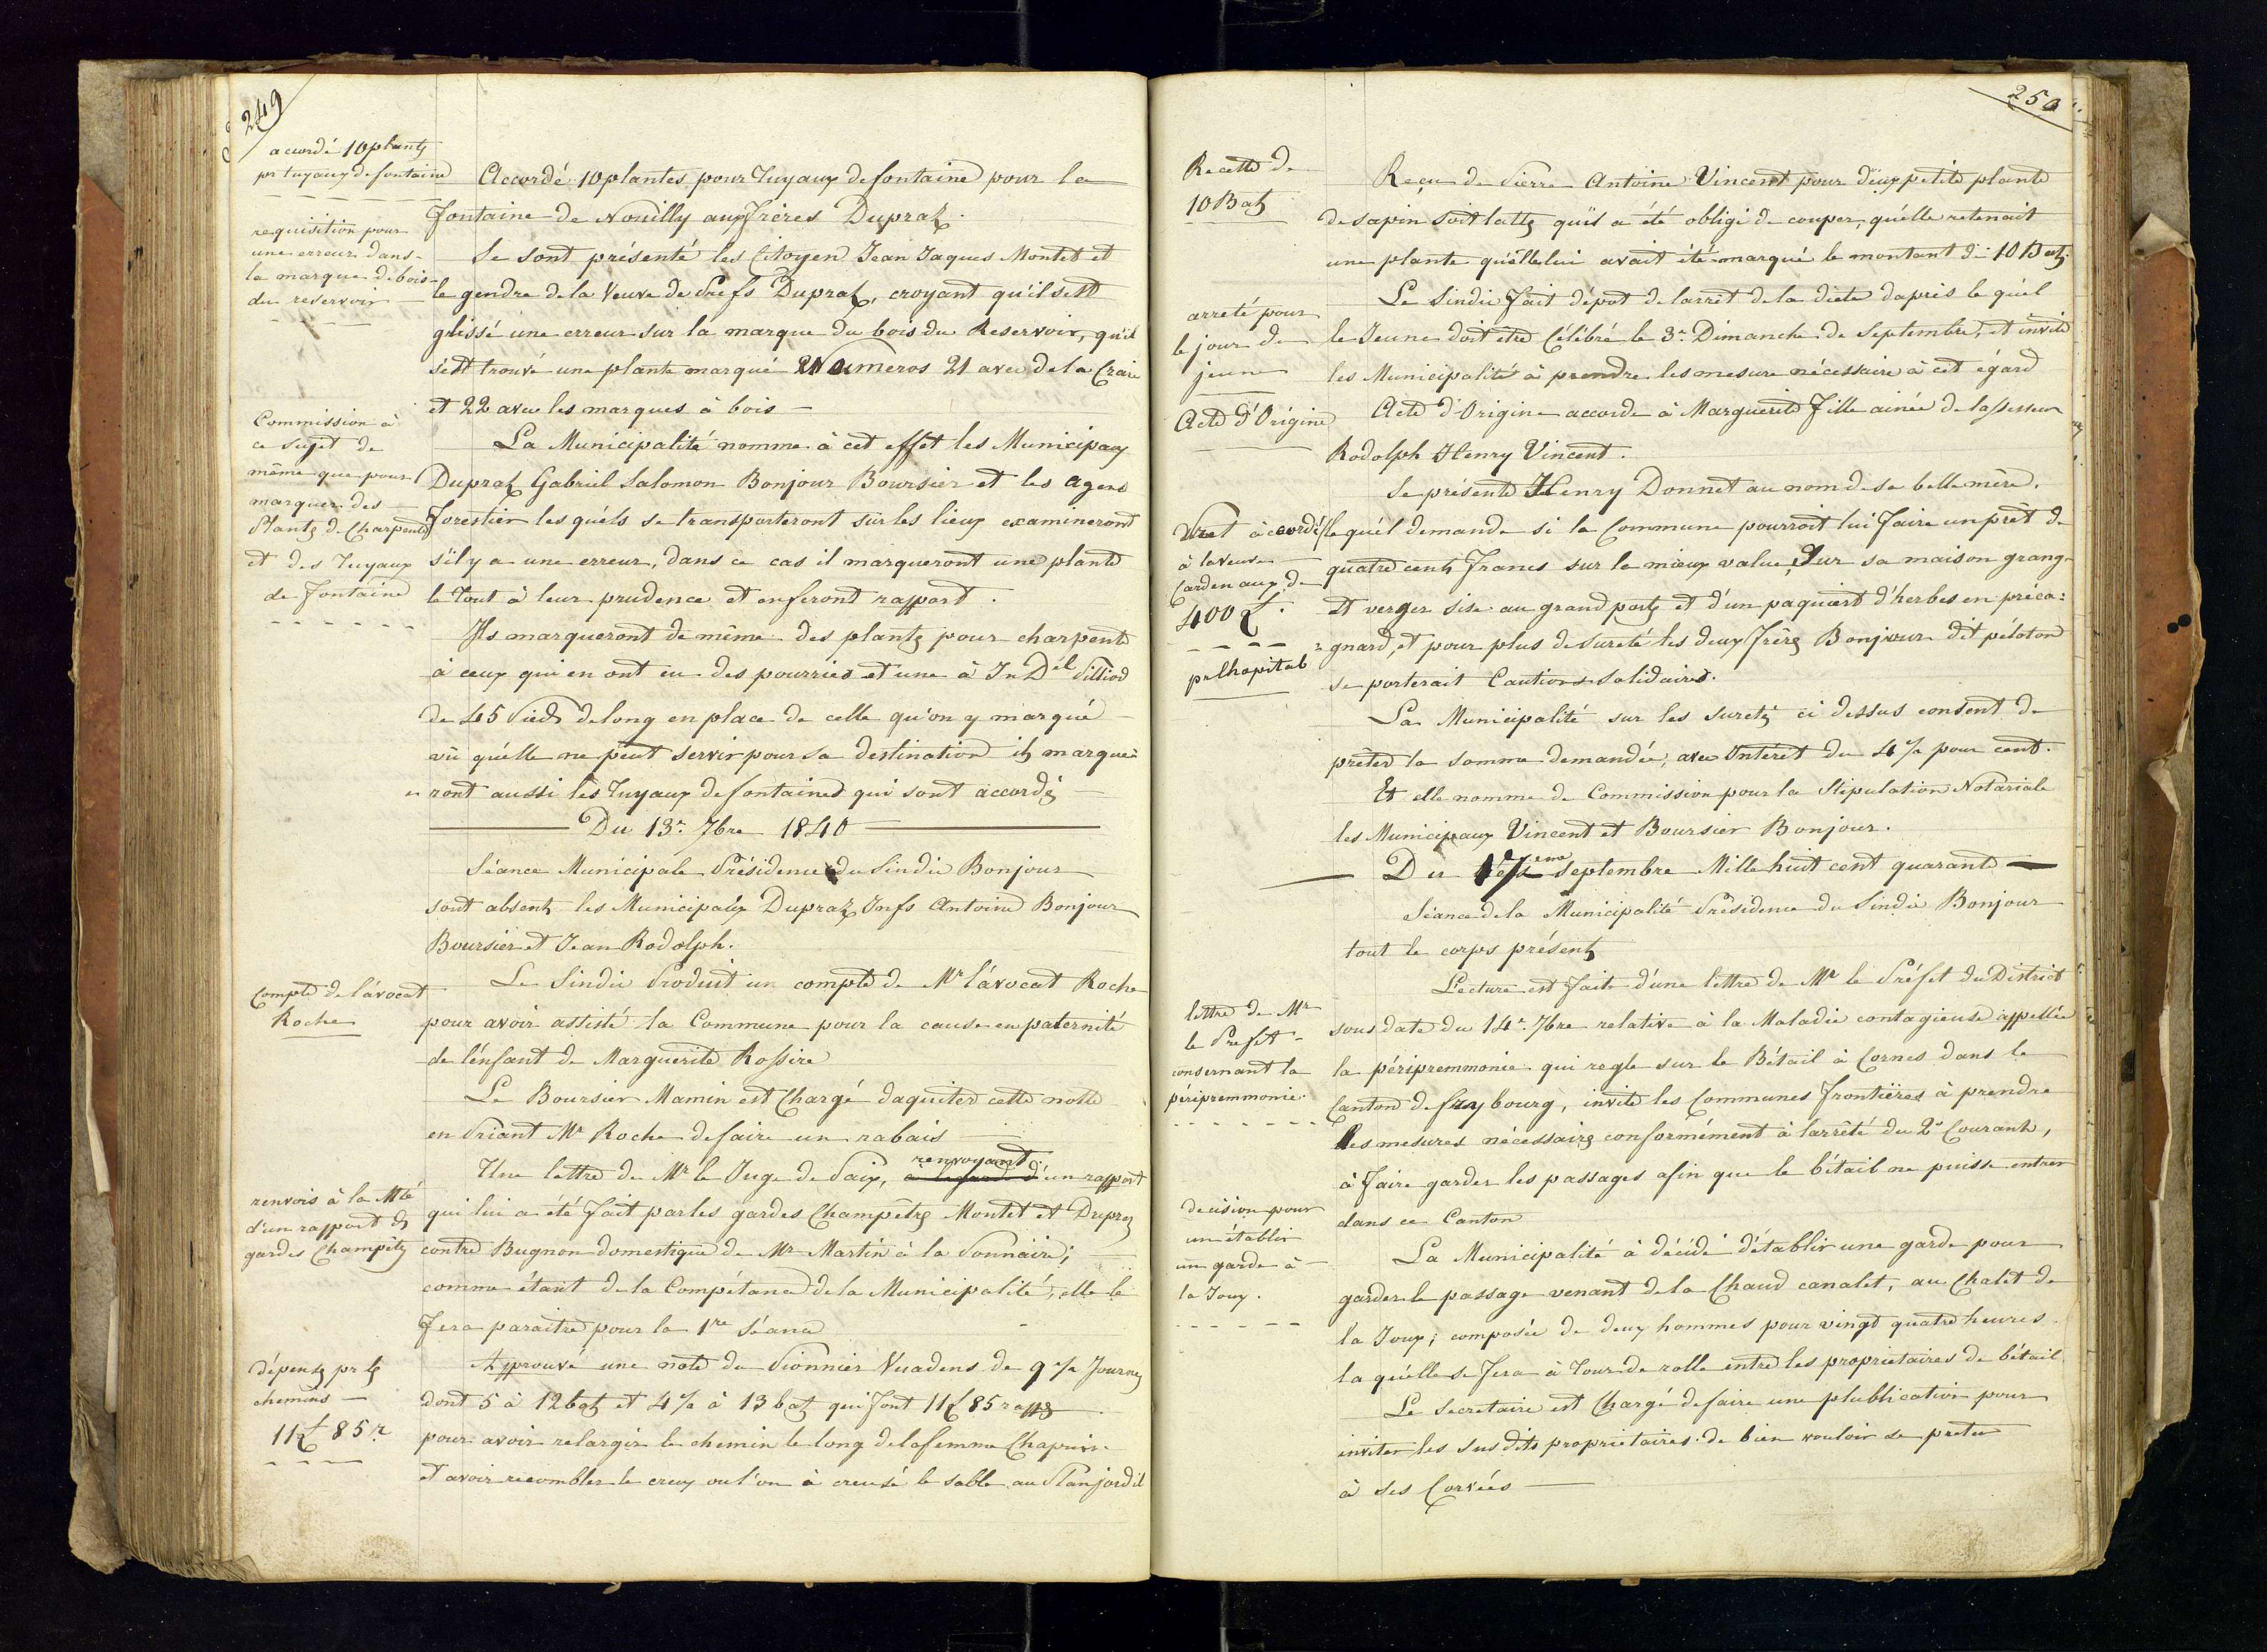 249
accordé 10 plants
pr tuyaux de fontaine
requisition pour
une erreur dans
la marque de bois
du reservoir
Commission à
ce sujet de
même que pour
marquer des
Plants de Charpente
et des Tuyaux
de fontaine
Compte de l'avocat
Roche
renvois à la Mté
d'un rapport ds
gardes Champêts
dépenses pr ls
chemins
11 £ 85 r
Accordé 10 plantes pour Tuyaux de fontaine pour la
fontaine de Nouilly aux frères Dupraz.
Se sont présenté les Citoyen Jean Jaques Montet et
le gendre de la Veuve de Prefs Dupraz, croyant qu'il s'est
glissé une erreur sur la marque du bois du Reservoir, qu'il
s'est trouvé une plante marqué Numeros 21 avec de la Craie
et 22 avec les marques à bois —
La Municipalité nomme à cet effet les Municipaux
Dupraz Gabriel Salomon Bonjour Boursier et les agens
forestier les quéls se transporteront sur les lieux examineront
s'il y a une erreur, dans ce cas il marqueront une plante
le Tout à leur prudence et en feront rapport.
Ils marqueront de même des plants pour charpente
à ceux qui en ont eu des pourries et une à Jn Del Pilliod
de 45 Pieds de long en place de celle qu'on y marqué
vû quélle ne peut servir pour sa destination ils marque-
ront aussi les Tuyaux de fontaines qui sont accordés —
Du 13e 7bre 1840
Séance Municipale Présidence du Sindic Bonjour
sont absents les Municipaux Dupraz Jnfs Antoine Bonjour
Boursier et Jean Rodolph.
Le Sindic Produit un compte de Mr l'avocat Roche
pour avoir assisté la Commune pour la cause en paternité
de l'énfant de Marguerite Rossire
Le Boursier Mamin est Chargé daquiter cette notte
en Priant Mr Roche de faire un rabais —
renvoyant
Une lettre de Mr le Juge de Paix, à l'egard d'un rapport
qui lui a été fait par les gardes Champêtrs Montet et Duprez
contre Bugnon domestique de Mr Martin à la Sonnaire;
comme étant de la Compétance de la Municipalité, elle le
fera paraitre pour la 1re Séance
Approuvé une note du Pionnier Vuadens de 9 ½ Journes
dont 5 à 12 batz et 4 ½ à 13 batz qui font 11 £ 85 rapps
pour avoir relargir le chemin le long de la femme Chapuis
et avoir recombler le creux ou l'on à creusé le sable au Planjordil
250
Recette de
10 Batz
arreté pour
le jour de
jeune
Acte d'Origine
Pret accordé
à la veuve
Cardenaux de
400 £.
pr lhopital
lettre de Mr
le Prefet
consernant la
péripremmonie.
décision pour
un établir
un garde à
la Joux.
Reçu de Pierre Antoine Vincent pour deux petite plante
de sapin soit latts quil a été obligé de couper, quélle retenait
une plante quélle lui avait été marqué le montant de 10 Batz.
Le Sindic fait dépot de larrêt de la diete dapris le quél
le Jeune doit etre Célébré le 3e Dimanche de Septembre, et invite
les Municipalité à prendre les mesure nécessaire à cet égard
Acte d'Origine accorde à Marguerite fille ainée de lassesseur
Rodolph Henry Vincent.
Se présente Henry Donnet au nom de sa belle mère.
le quél demande si la Commune pourroit lui faire un prêt de
quatre cents Francs sur le mieux value, Sur sa maison grange
et verger sise au grand parts et d'un paquiert d'herbes en préca=
=gnard, et pour plus de sureté les deux frères Bonjour dit péloton
se porterait Cautions Solidaires.
La Municipalité sur les suretés ci dessus consent de
prêter la somme demandée, avec Intérêt du 4 ½ pour cent.
Et elle nomme de Commission pour la Stipulation Notariale
les Municipaux Vincent et Boursier Bonjour.
Du 17eme Septembre Mille huit cent quarante —
Séance de la Municipalité Présidence du Sindic Bonjour
tout le corps présents
Lecture est faite d'une lettre de Mr le Préfet du District
sous date du 14e 7bre relative à la Maladie contagieuse appellée
la péripremmonie qui regle sur le Bétail à Cornes dans le
Canton de fraybourg, invite les Communes frontières à prendre
les mesures nécessairs conformément à larrêté du 2e Courant,
à faire garder les passages afin que le bétail ne puisse entrer
dans ce Canton
La Municipalité à décidé d'établir une garde pour
garder le passage venant de la Chaud canalet, au Chalet de
la Joux; composée de deux hommes pour vingt quatre heures.
la quélle se fera à Tour de rolle entre les proprietaires de bétail.
Le Secretaire est Chargé de faire une plublication pour
inviter les sus dits proprietaires de bien vouloir se preter
à ses Corvées —